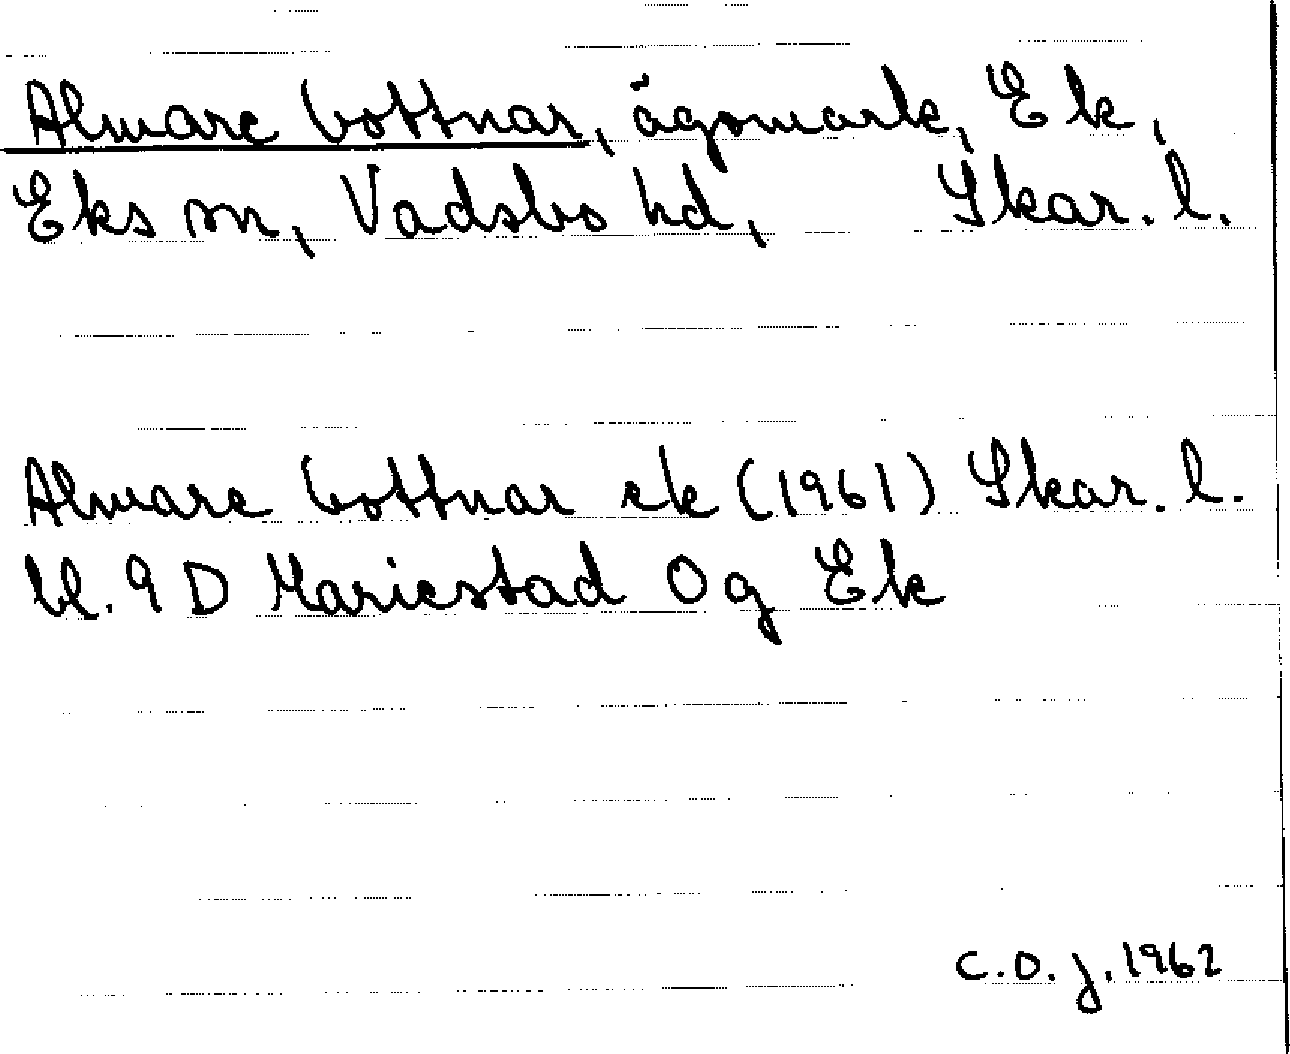 Almare bottnar, ägomark, Ek,
Eks sn, Vadsbo hd, Skar. l.
Almare bottnar ek (1961) Skar. l.
bl. 9 D Mariestad Og Ek
C.O.J. 1962